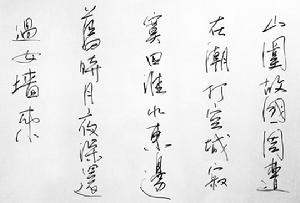 山圍故國周遭
在潮打空城寂
寞回淮水東邊
舊時月夜深還
過女墻來